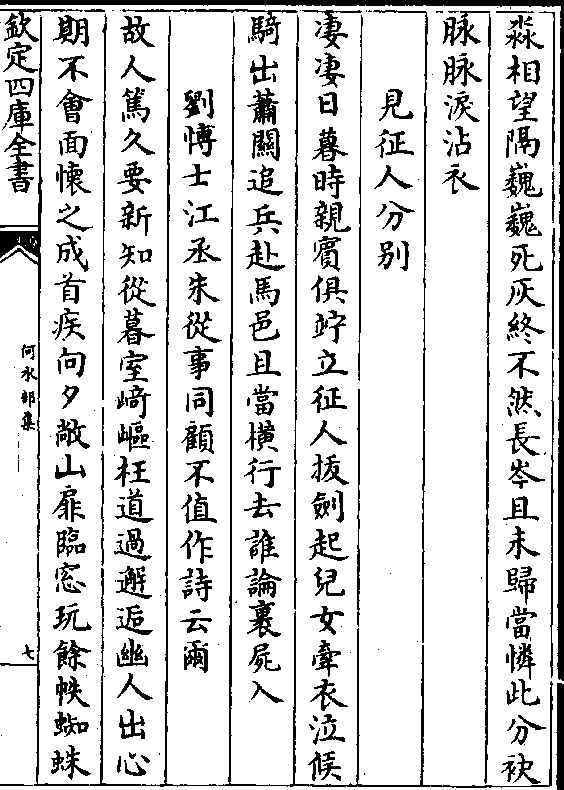 淼相望隔巍巍死灰終不然長岑且未歸當憐此分袂
脉脉淚沾衣
見征人分别
凄凄日暮時親賓俱竚立征人拔劍起兒女牽衣泣候
騎出蕭關追兵赴馬邑且當横行去誰論裹屍入
劉博士江丞朱從事同顧不值作詩云爾
故人篤久要新知從暮室﨑嶇枉道過邂逅幽人出心
期不會面懷之成首疾向夕敞山扉臨窓玩餘帙蜘蛛
欽定四庫全書
何水部集
七